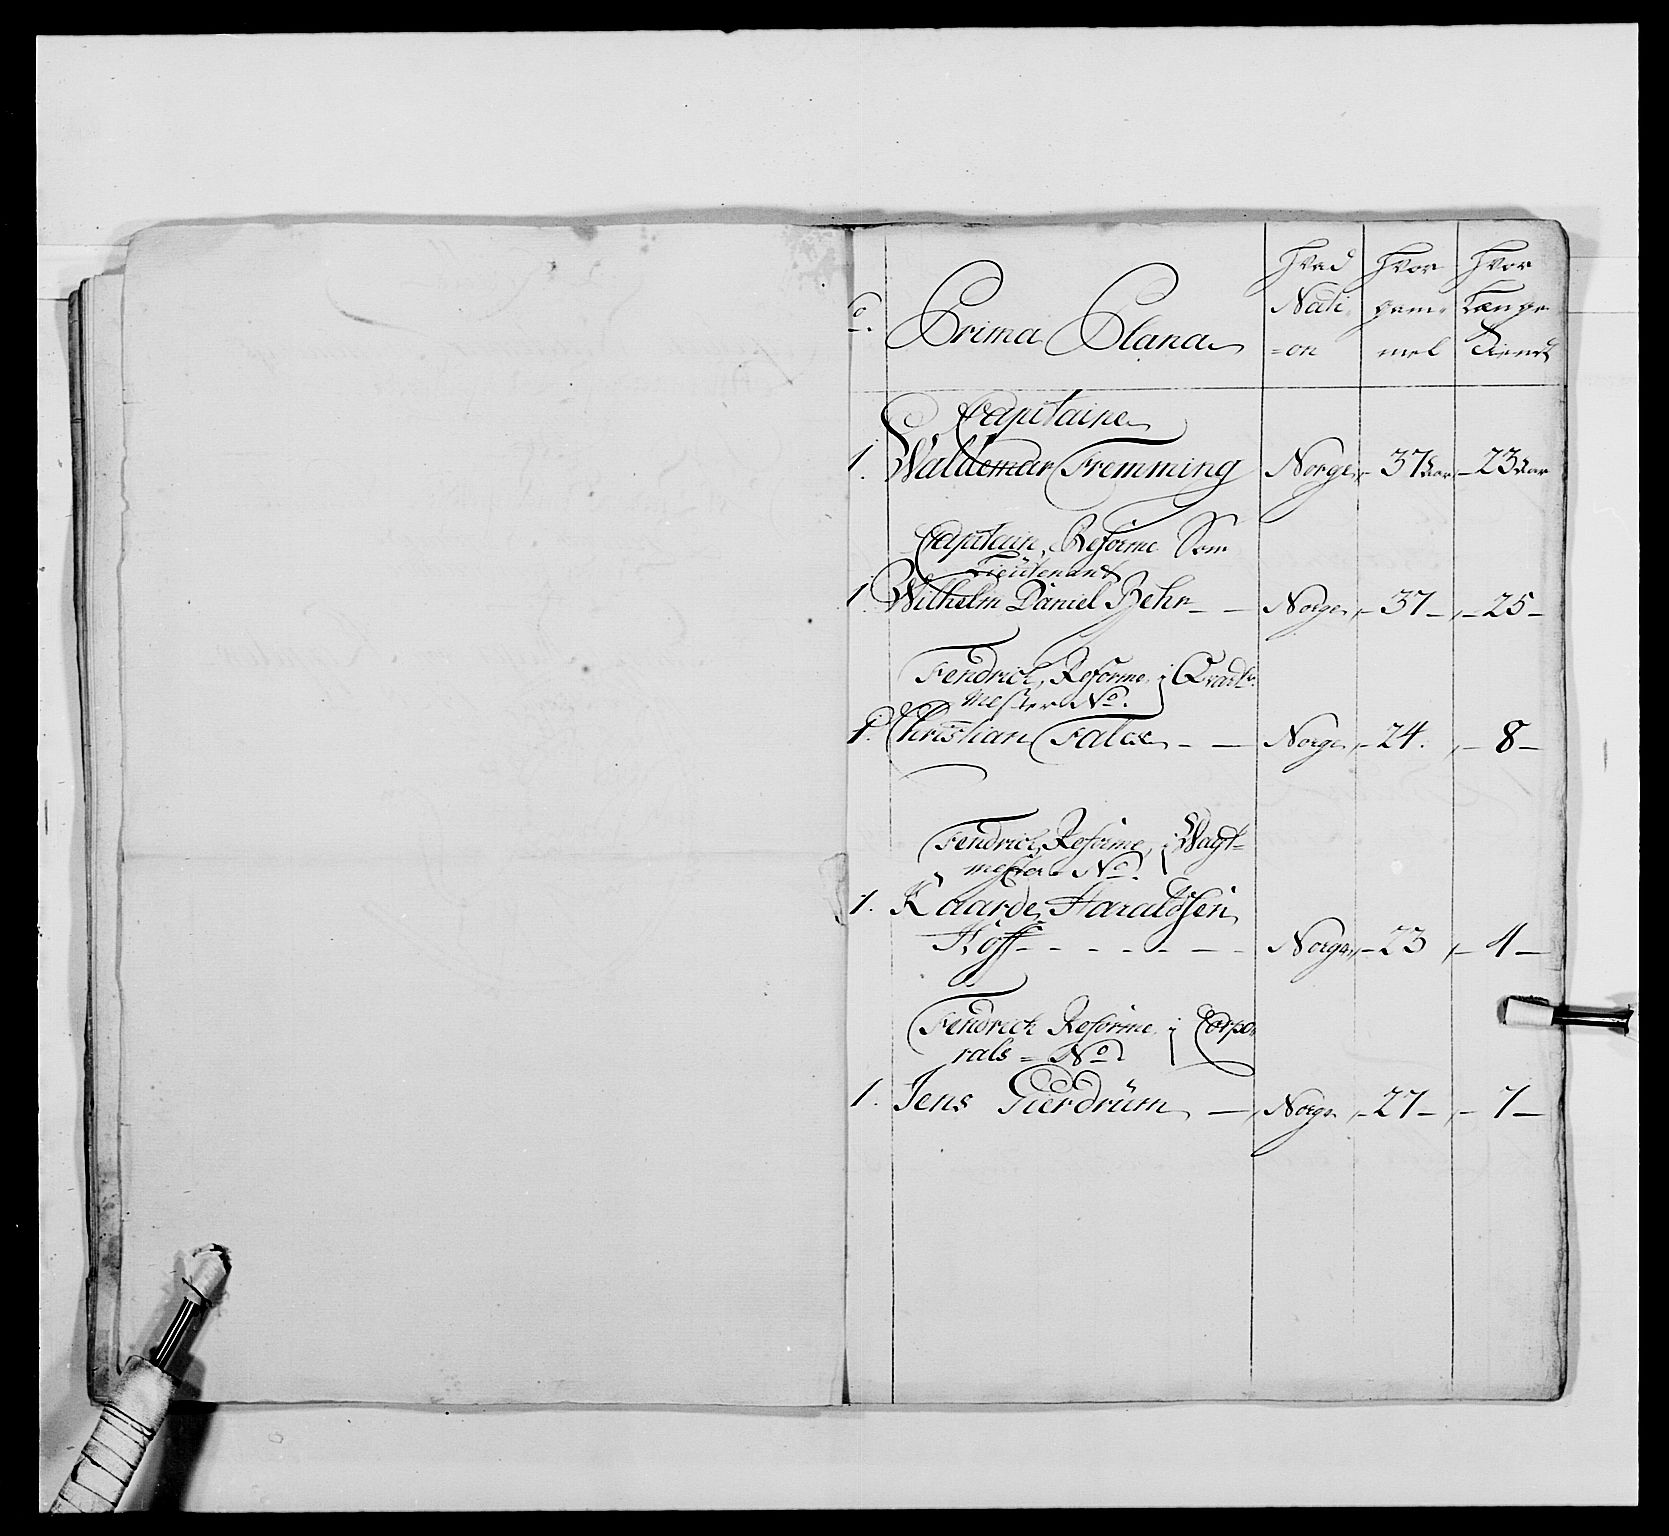 o. Prima Plana Hvad Nati=on Hvor gam=mel Hvor Længe Tient
Capitaine
1. Waldemar Fremming Norge, 37 Aar, 23 Aar
Capitain, Reforme Som
Lieutenant
1. Wilhelm Daniel Behr - - Norge, - 37 -, - 25 -
Fendrich, Reforme, i Qvarteer
mester No.
1. Christian Falck - - Norge, - 24. , - 8 -
Fendrich, Reforme, i Wagt=
mester No.
1. Kaarde Haraldsen
Hoff - - - - - - - Norge, - 23 , - 4 -
Fendrich Reforme, i Corpo=
rals = No.
1. Jens Gierdrüm, - Norge, - 27 -, - 7 -